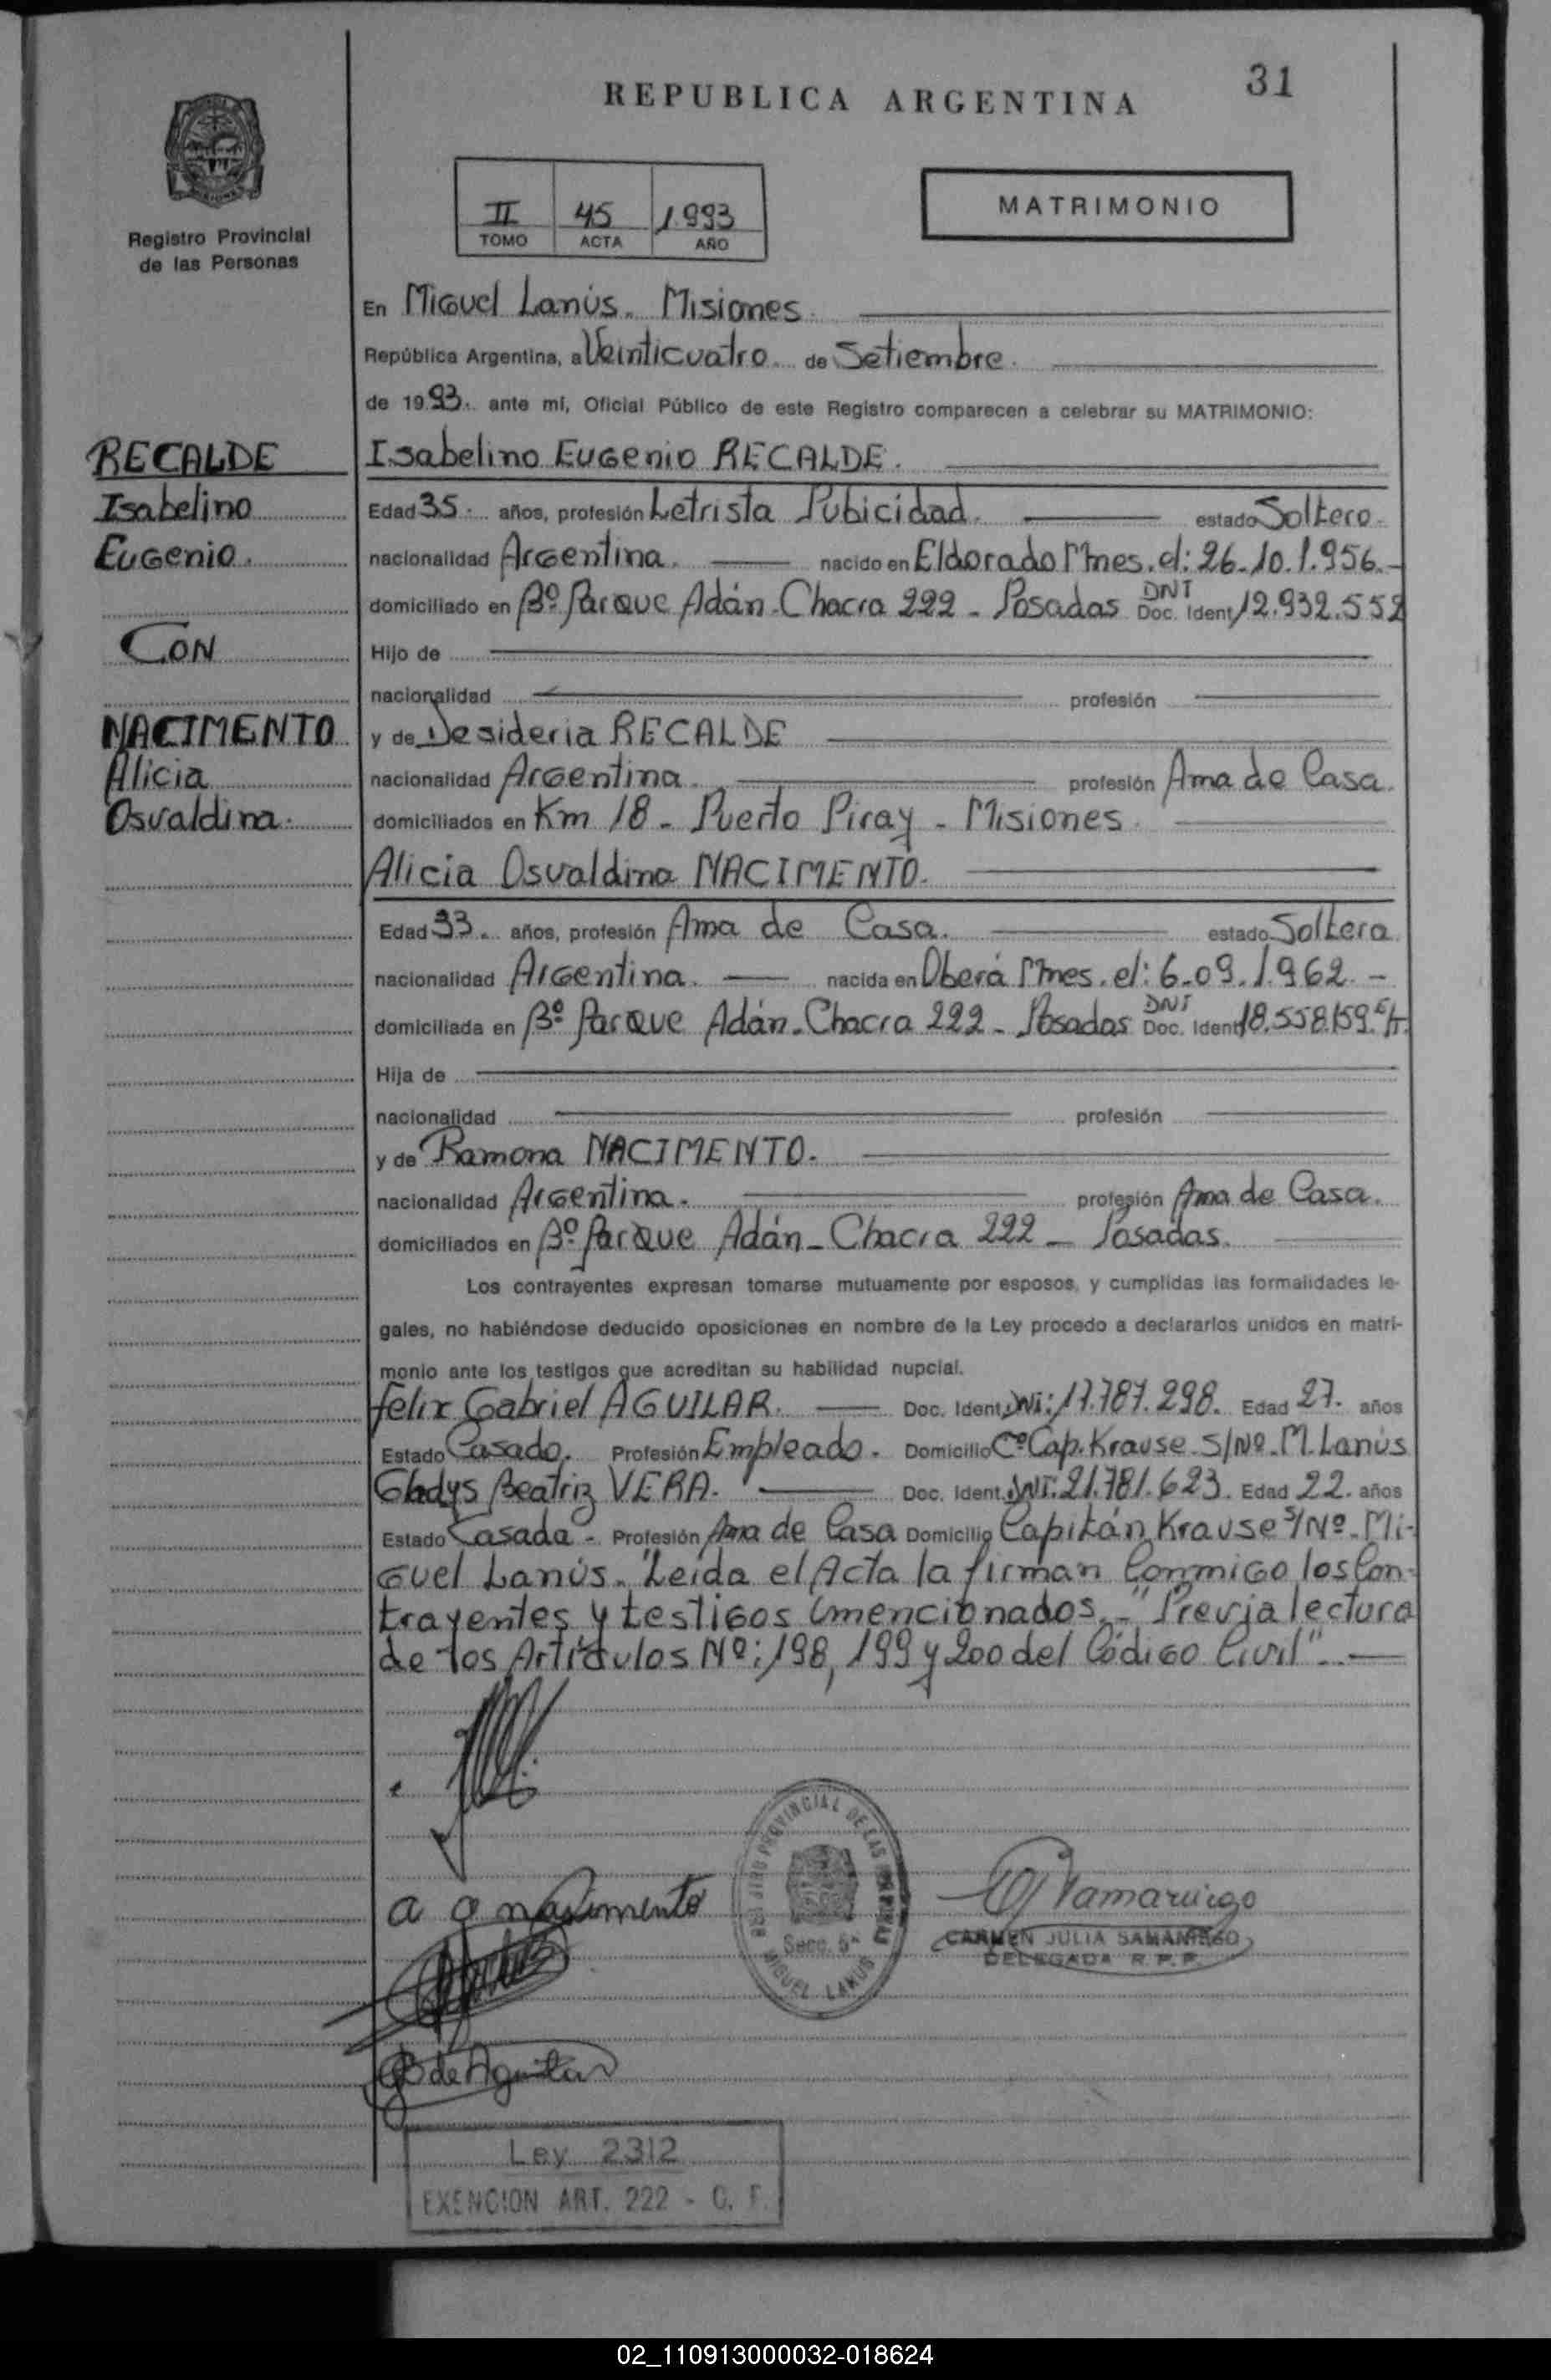 31
REPUBLICA ARGENTINA
Registro Provincial
de las Personas
II 45 1.993
TOMO ACTA AÑO
MATRIMONIO
En Miguel Lanús. Misiones.
República Argentina, a Veinticuatro de Setiembre.
de 1993. ante mí, Oficial Público de este Registro comparecen a celebrar su MATRIMONIO:
RECALDE
Isabelino
Eugenio.
CON
NACIMENTO
Alicia
Osvaldina.
Isabelino Eugenio RECALDE.
Edad 35. años, profesión Letrista Pubicidad. estado Soltero.
nacionalidad Argentina. nacido en Eldorado Mnes. el: 26.10.1.956.-
domiciliado en Bº Parque Adán-Chacra 222 - Posadas DNI Doc. Ident 12.932.552
Hijo de
nacionalidad profesión
y de Desideria RECALDE
nacionalidad Argentina. profesión Ama de Casa.
domiciliados en Km 18 - Puerto Piray - Misiones.
Alicia Osvaldina NACIMENTO.
Edad 33. años, profesión Ama de Casa. estado Soltera
nacionalidad Argentina. nacida en Oberá Mnes. el: 6.09.1.962.-
domiciliada en Bº Parque Adán-Chacra 222 - Posadas DNI Doc. Ident 18.558.159.
Hija de
nacionalidad profesión
y de Ramona NACIMENTO.
nacionalidad Argentina. profesión Ama de Casa.
domiciliados en Bº Parque Adán - Chacra 222 - Posadas.
Los contrayentes expresan tomarse mutuamente por esposos, y cumplidas las formalidades le-
gales, no habiéndose deducido oposiciones en nombre de la Ley procedo a declararlos unidos en matri-
monio ante los testigos que acreditan su habilidad nupcial.
Felix Gabriel AGUILAR. Doc. Ident. DNI: 17.787.298. Edad 27. años
Estado Casado. Profesión Empleado. Domicilio Cº Cap. Krause S/Nº. M. Lanús
Gladys Beatriz VERA. Doc. Ident. DNI: 21.781.623. Edad 22. años
Estado Casada - Profesión Ama de Casa Domicilio Capitán Krause S/Nº. Mi-
guel Lanús. Leída el Acta la firman Conmigo los Con-
trayentes y testigos mencionados.- "Previa lectura
de los Artículos Nº: 198, 199 y 200 del Código Civil".
a o nacimento
REGISTRO PROVINCIAL DE LAS PERSONAS
Secc. 5ª
MIGUEL LANUS
CARMEN JULIA SAMANIEGO
DELEGADA R. P. P.
de Aguilar
Ley 2312
EXENCION ART. 222 - C. F.
02_110913000032-018624